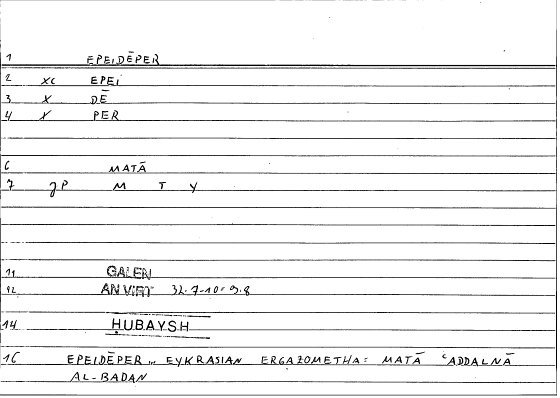 1 EPEIDĒPER
2 xc EPEI
3 x DĒ
4 x PER
6 MATĀ
7 JP M T Y
11 GALEN
12 AN VIRT 32.7-10=9.8
14 ḤUBAYSH
16 EPEIDĒPER... EYKRASIAN ERGAZOMETHA= MATĀ ʿADDALNĀ
AL-BADAN